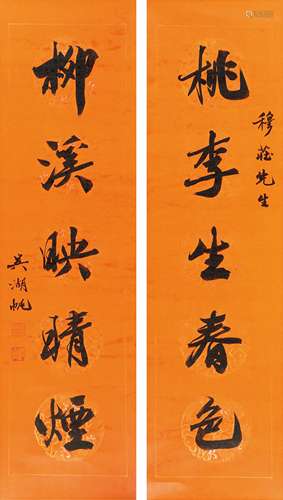 桃李生春色
穆莊先生
柳溪映晴煙
吳湖帆